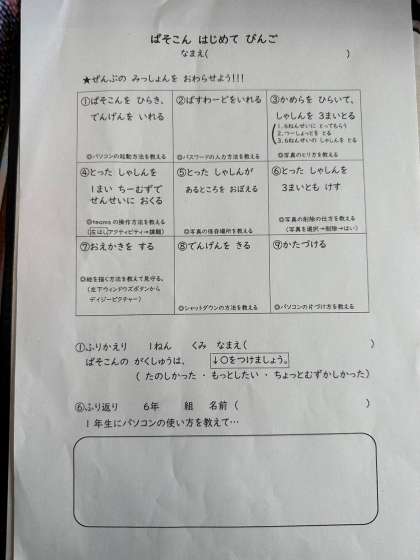 ぱそこん はじめて びんご
なまえ( )
★ぜんぶの みっしょんを おわらせよう!!!
①ぱそこんを ひらき、
でんげんを いれる
◎パソコンの起動方法を教える
②ぱすわーどをいれる
◎パスワードの入力方法を教える
③かめらを ひらいて、
しゃしんを 3まいとる
1.6ねんせいに とってもらう
2.つーしょっとを とる
3.6ねんせいの しゃしんを とる
◎写真のとり方を教える
④とった しゃしんを
1まい ちーむずで
せんせいに おくる
◎teamsの操作方法を教える
(左はしアクティビティ→課題)
⑤とった しゃしんが
あるところを おぼえる
◎写真の保存場所を教える
⑥とった しゃしんを
3まいとも けす
◎写真の削除の仕方を教える
(写真を選択→削除→はい)
⑦おえかきを する
◎絵を描く方法を教えて見守る。
(左下ウィンドウズボタンから
デイジーピクチャー)
⑧でんげんを きる
◎シャットダウンの方法を教える
⑨かたづける
◎パソコンの片づけ方を教える
①ふりかえり 1ねん くみ なまえ( )
ぱそこんの がくしゅうは、 ↓○をつけましょう。
( たのしかった ・ もっとしたい ・ ちょっとむずかしかった)
⑥ふり返り 6年 組 名前 ( )
1年生にパソコンの使い方を教えて…